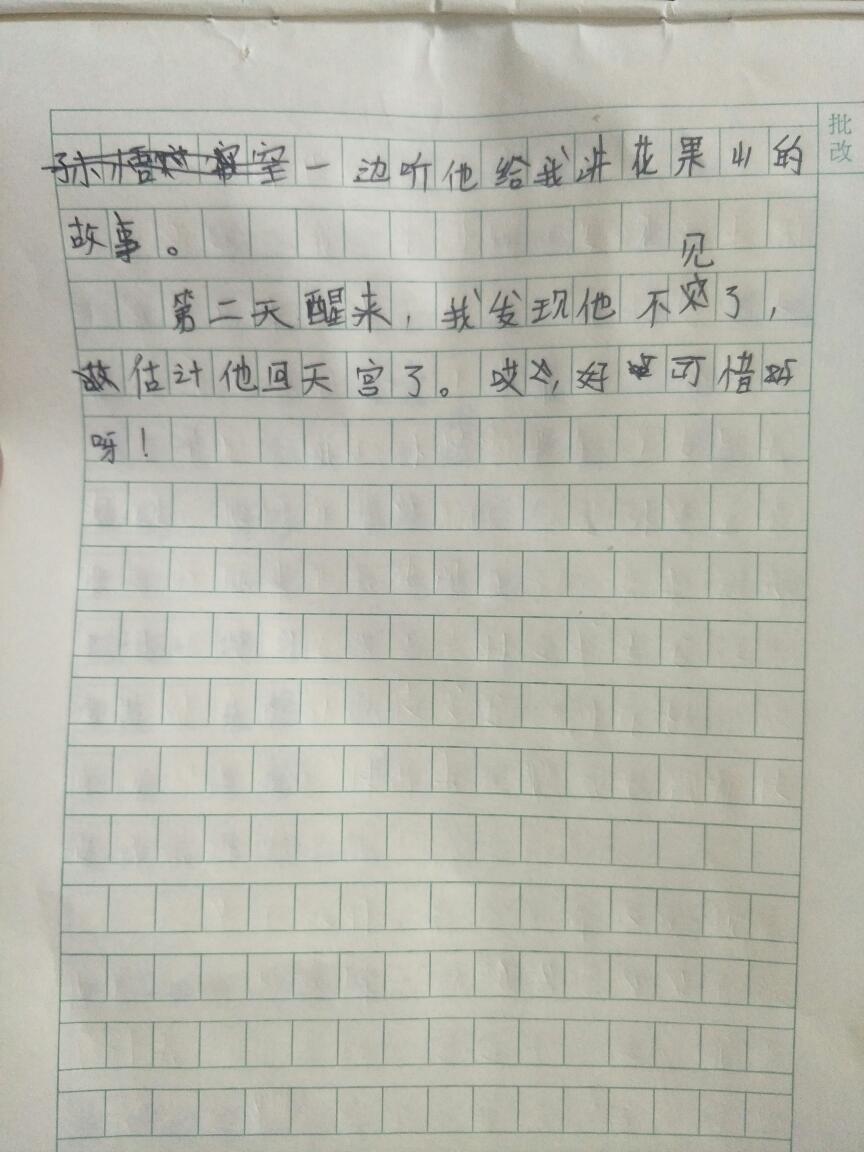 批改
一边听他给我讲花果山的
故事。
第二天醒来，我发现他不见了，
估计他回天宫了。哎，好可惜
呀！